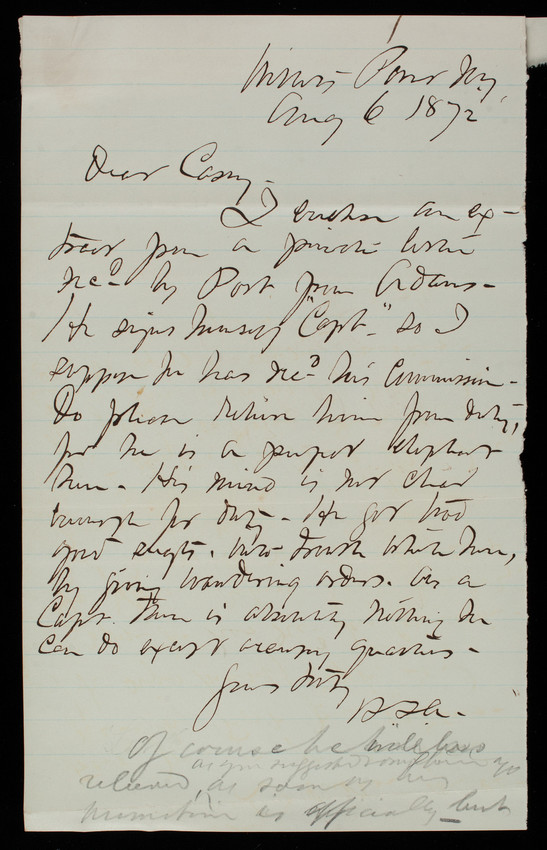 Willets Point NY
Aug 6 1872
Dear Casey -
I enclose an ex-
tract from a private letter
rec'd by Post from Adams -
He signs himself "Capt -" so I
suppose he has rec'd his Commission -
Do please relieve him from duty,
for he is a perfect elephant
here - His mind is not clear
enough for duty - He got two
good sergts. into trouble while here,
by giving wandering orders. As a
Capt. there is absolutely nothing he
can do except occupy quarters -
Yours truly
Of course he will be
as you suggested some time ago
relieved, as soon as his
promotion is officially but